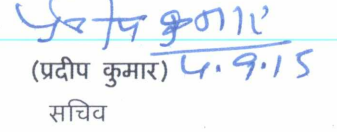 प्रदीप कुमार
(प्रदीप कुमार) 4.9.15
सचिव